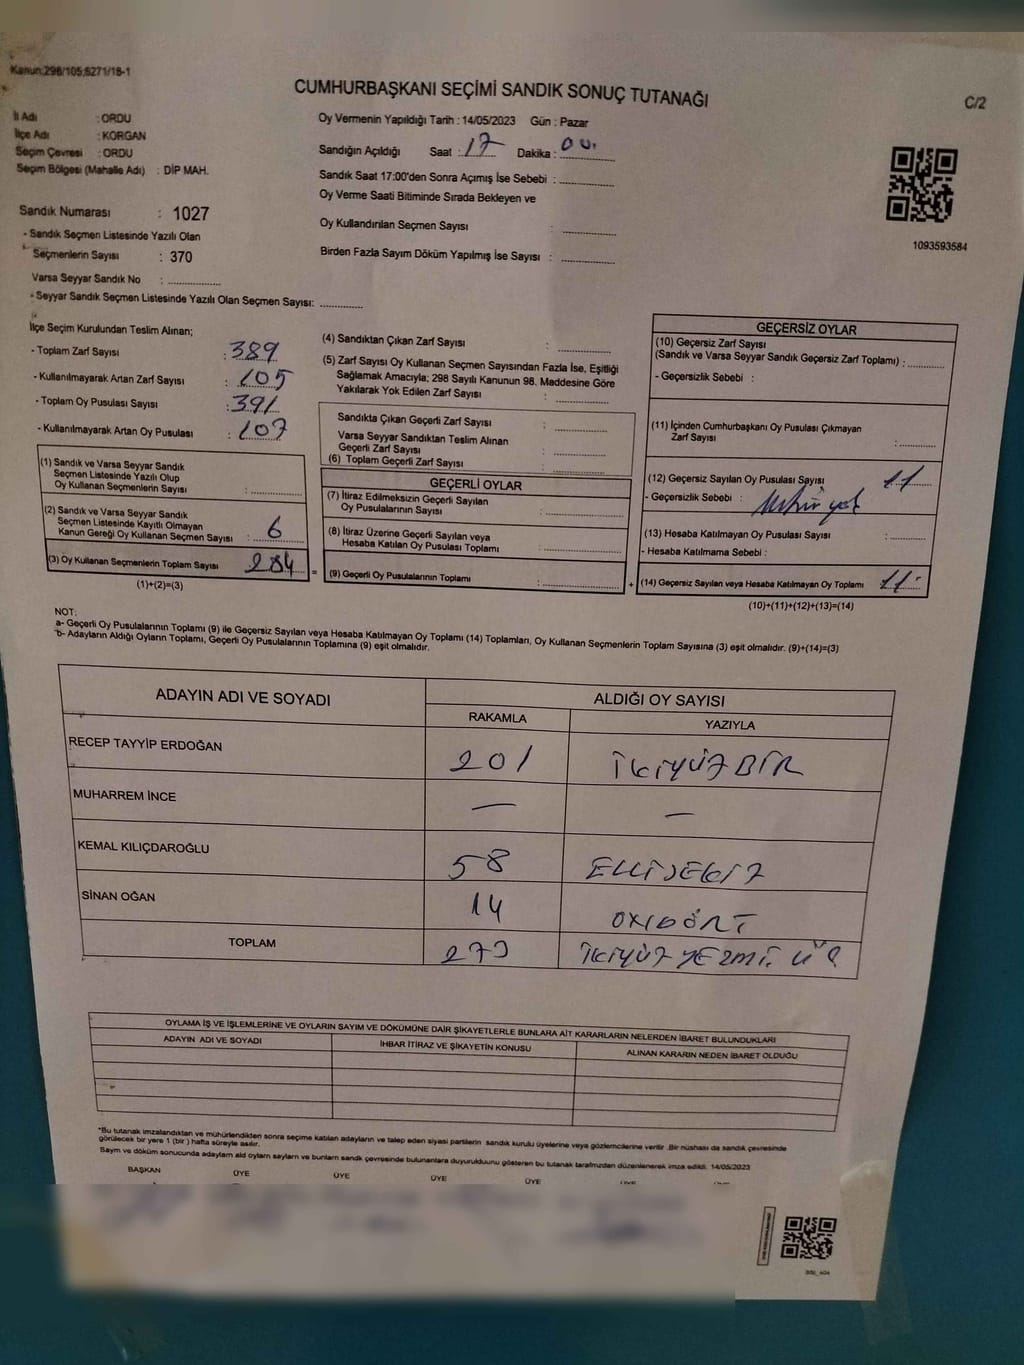 Kanun:298/105;6271/18-1
CUMHURBAŞKANI SEÇİMİ SANDIK SONUÇ TUTANAĞI
C/2
İl Adı : ORDU
İlçe Adı : KORGAN
Seçim Çevresi : ORDU
Seçim Bölgesi (Mahalle Adı) : DİP MAH.
Oy Vermenin Yapıldığı Tarih : 14/05/2023 Gün : Pazar
Sandığın Açıldığı Saat : 17 Dakika : 00.
Sandık Saat 17:00'den Sonra Açımış İse Sebebi :
Oy Verme Saati Bitiminde Sırada Bekleyen ve
Oy Kullandırılan Seçmen Sayısı :
Birden Fazla Sayım Döküm Yapılmış İse Sayısı :
1093593584
Sandık Numarası : 1027
- Sandık Seçmen Listesinde Yazılı Olan
Seçmenlerin Sayısı : 370
Varsa Seyyar Sandık No :
- Seyyar Sandık Seçmen Listesinde Yazılı Olan Seçmen Sayısı:
İlçe Seçim Kurulundan Teslim Alınan;
- Toplam Zarf Sayısı : 389
- Kullanılmayarak Artan Zarf Sayısı : 105
- Toplam Oy Pusulası Sayısı : 391
- Kullanılmayarak Artan Oy Pusulası : 107
(1) Sandık ve Varsa Seyyar Sandık
Seçmen Listesinde Yazılı Olup
Oy Kullanan Seçmenlerin Sayısı :
(2) Sandık ve Varsa Seyyar Sandık
Seçmen Listesinde Kayıtlı Olmayan
Kanun Gereği Oy Kullanan Seçmen Sayısı : 6
(3) Oy Kullanan Seçmenlerin Toplam Sayısı : 284
(1)+(2)=(3)
(4) Sandıktan Çıkan Zarf Sayısı :
(5) Zarf Sayısı Oy Kullanan Seçmen Sayısından Fazla İse, Eşitliği
Sağlamak Amacıyla; 298 Sayılı Kanunun 98. Maddesine Göre
Yakılarak Yok Edilen Zarf Sayısı :
Sandıkta Çıkan Geçerli Zarf Sayısı :
Varsa Seyyar Sandıktan Teslim Alınan
Geçerli Zarf Sayısı :
(6) Toplam Geçerli Zarf Sayısı :
GEÇERLİ OYLAR
(7) İtiraz Edilmeksizin Geçerli Sayılan
Oy Pusulalarının Sayısı :
(8) İtiraz Üzerine Geçerli Sayılan veya
Hesaba Katılan Oy Pusulası Toplamı :
= (9) Geçerli Oy Pusulalarının Toplamı :
GEÇERSİZ OYLAR
(10) Geçersiz Zarf Sayısı
(Sandık ve Varsa Seyyar Sandık Geçersiz Zarf Toplamı) :
- Geçersizlik Sebebi :
(11) İçinden Cumhurbaşkanı Oy Pusulası Çıkmayan
Zarf Sayısı :
(12) Geçersiz Sayılan Oy Pusulası Sayısı : 11
- Geçersizlik Sebebi : Mühür yok
(13) Hesaba Katılmayan Oy Pusulası Sayısı :
- Hesaba Katılmama Sebebi :
+ (14) Geçersiz Sayılan veya Hesaba Katılmayan Oy Toplamı 11
(10)+(11)+(12)+(13)=(14)
NOT:
a- Geçerli Oy Pusulalarının Toplamı (9) ile Geçersiz Sayılan veya Hesaba Katılmayan Oy Toplamı (14) Toplamları, Oy Kullanan Seçmenlerin Toplam Sayısına (3) eşit olmalıdır. (9)+(14)=(3)
b- Adayların Aldığı Oyların Toplamı, Geçerli Oy Pusulalarının Toplamına (9) eşit olmalıdır.
ADAYIN ADI VE SOYADI
ALDIĞI OY SAYISI
RAKAMLA YAZIYLA
RECEP TAYYİP ERDOĞAN 201 İKİYÜZBİR
MUHARREM İNCE — —
KEMAL KILIÇDAROĞLU 58 ELLİSEKİZ
SİNAN OĞAN 14 ONDÖRT
TOPLAM 273 İKİYÜZ YERMİ ÜÇ
OYLAMA İŞ VE İŞLEMLERİNE VE OYLARIN SAYIM VE DÖKÜMÜNE DAİR ŞİKAYETLERLE BUNLARA AİT KARARLARIN NELERDEN İBARET BULUNDUKLARI
ADAYIN ADI VE SOYADI İHBAR İTİRAZ VE ŞİKAYETİN KONUSU ALINAN KARARIN NEDEN İBARET OLDUĞU
*Bu tutanak imzalandıktan ve mühürlendikten sonra seçime katılan adayların ve talep eden siyasi partilerin sandık kurulu üyelerine veya gözlemcilerine verilir. Bir nüshası da sandık çevresinde
görülecek bir yere 1 (bir) hafta süreyle asılır.
Sayım ve döküm sonucunda adayların aldı oyların sayıları ve bunların sandık çevresinde bulunanlara duyurulduunu gösteren bu tutanak tarafımızdan düzenlenerek imza edildi. 14/05/2023
BAŞKAN ÜYE ÜYE ÜYE ÜYE